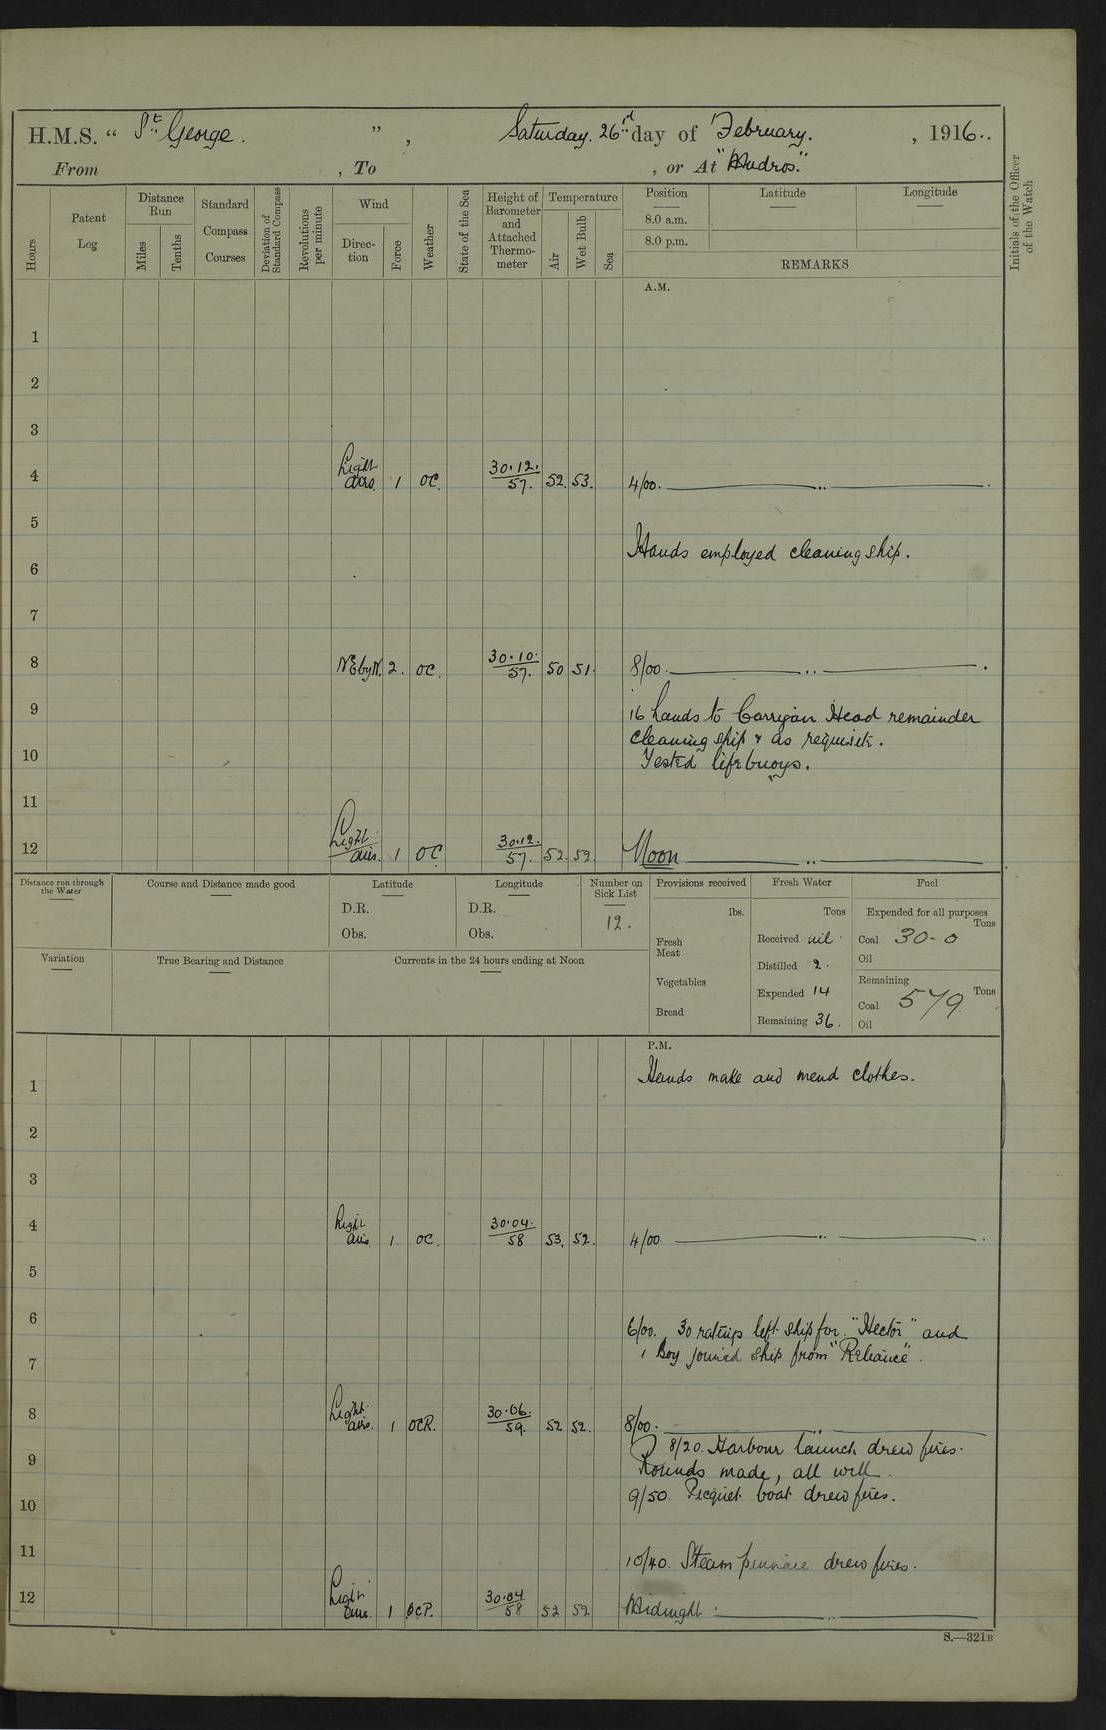 H.M.S. “ St George. ” , Saturday. 26rd day of February. , 1916..
From , To , or At "Mudros."
Hours
Patent Log
Distance Run
Miles
Tenths
Standard Compass Courses
Deviation of Standard Compass
Revolutions per minute
Wind
Direc- tion
Force
Weather
State of the Sea
Height of Barometer and Attached Thermo- meter
Temperature
Air
Wet Bulb
Sea
Position
Latitude
Longitude
8.0 a.m.
8.0 p.m.
REMARKS
Initials of the Officer of the Watch
A.M.
1
2
3
4 Light airs. 1 OC. 30.12. 57. 52. 53. 4/00.
5
Hands employed cleaning ship.
6
7
8 NEbyN. 2. OC. 30.10. 57. 50 51. 8/00.
9
16 hands to Carrigan Head remainder
cleaning ship & as requisite.
10
Tested lifebuoys.
11
12 Light airs. 1 OC 30.12. 57. 52. 52. Noon
Distance run through the Water
Course and Distance made good
Latitude
D.R.
Obs.
Longitude
D.R.
Obs.
Number on Sick List
12.
Provisions received
lbs.
Fresh Meat
Vegetables
Bread
Fresh Water
Tons
Received nil
Distilled 2.
Expended 14
Remaining 36.
Fuel
Expended for all purposes
Tons
Coal 30-0
Oil
Remaining
Tons
Coal 579
Oil
Variation
True Bearing and Distance
Currents in the 24 hours ending at Noon
P.M.
Hands make and mend clothes.
1
2
3
4 Light airs. 1 OC. 30.04. 58 53. 52. 4/00
5
6
6/00. 30 ratings left ship for "Hector" and
1 Boy joined ship from "Reliance".
7
8 Light airs. 1 OCR. 30.06. 59. 52 52. 8/00.
8/20. Harbour launch drew fires.
9
Rounds made, all well.
9/50. Picquet boat drew fires.
10
11
10/40. Steam pinnace drew fires.
12 Light airs. 1 OCP. 30.04 58 52 52 Midnight.
S.—321B